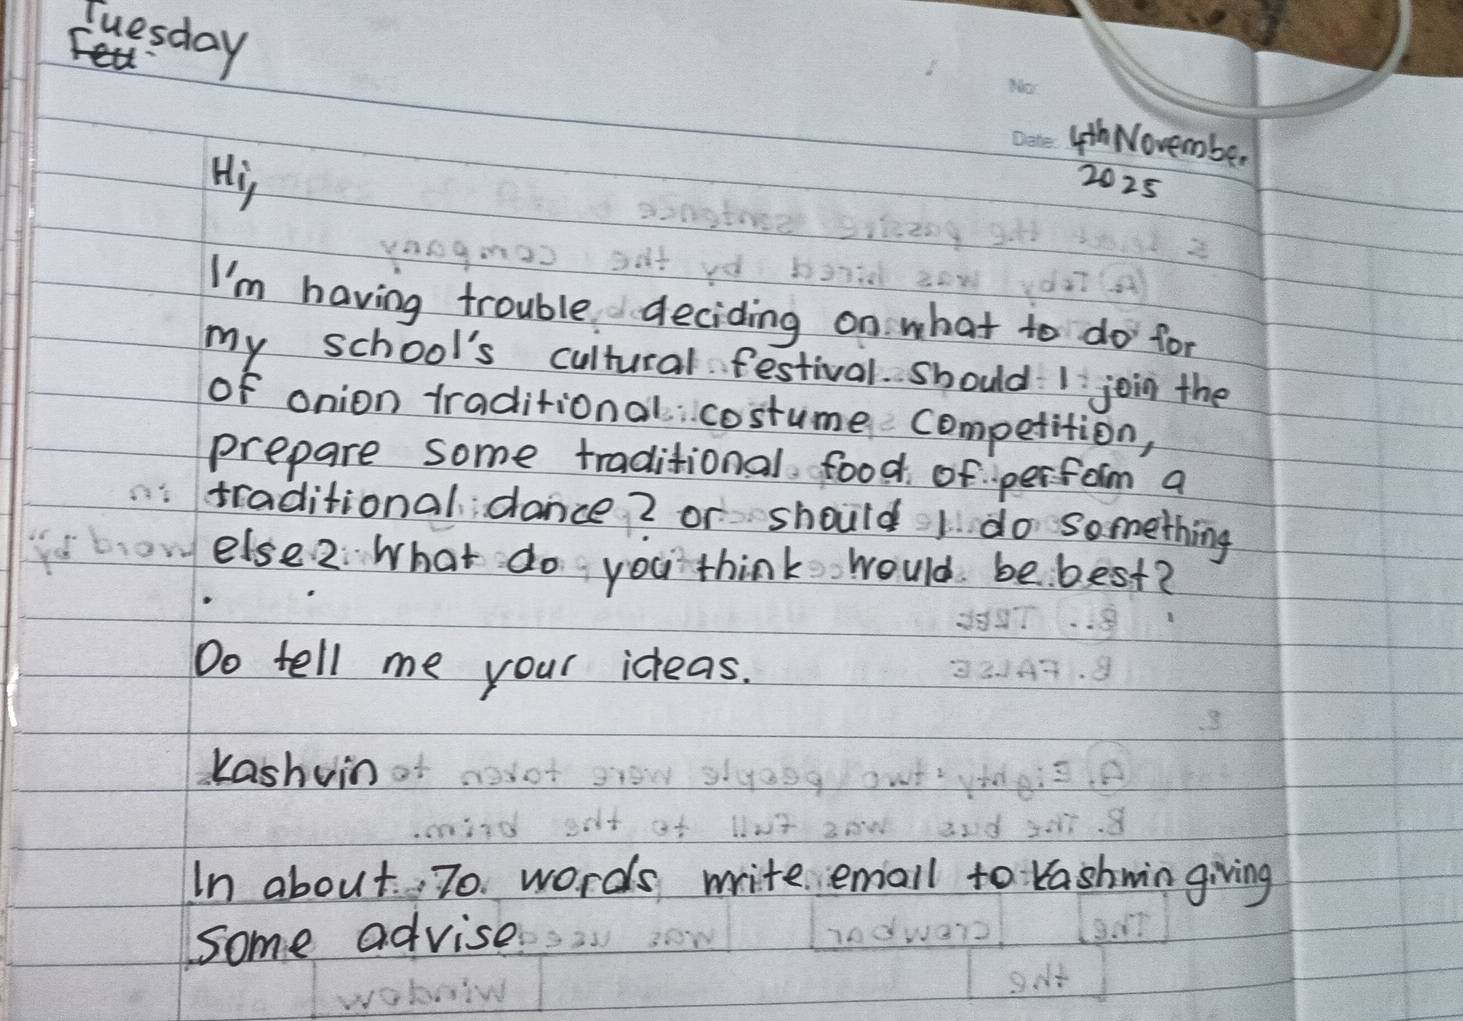 Tuesday
No:
Date: 4th November
2025
Hi,
I'm having trouble deciding on what to do for
my school's cultural festival. Should I join the
of onion traditional costume competition,
prepare some traditional food of perform a
traditional dance? or should I do something
else? What do you think would be best?
Do tell me your ideas.
Kashvin
In about 70 words, write email to Kashvin giving
some advise.